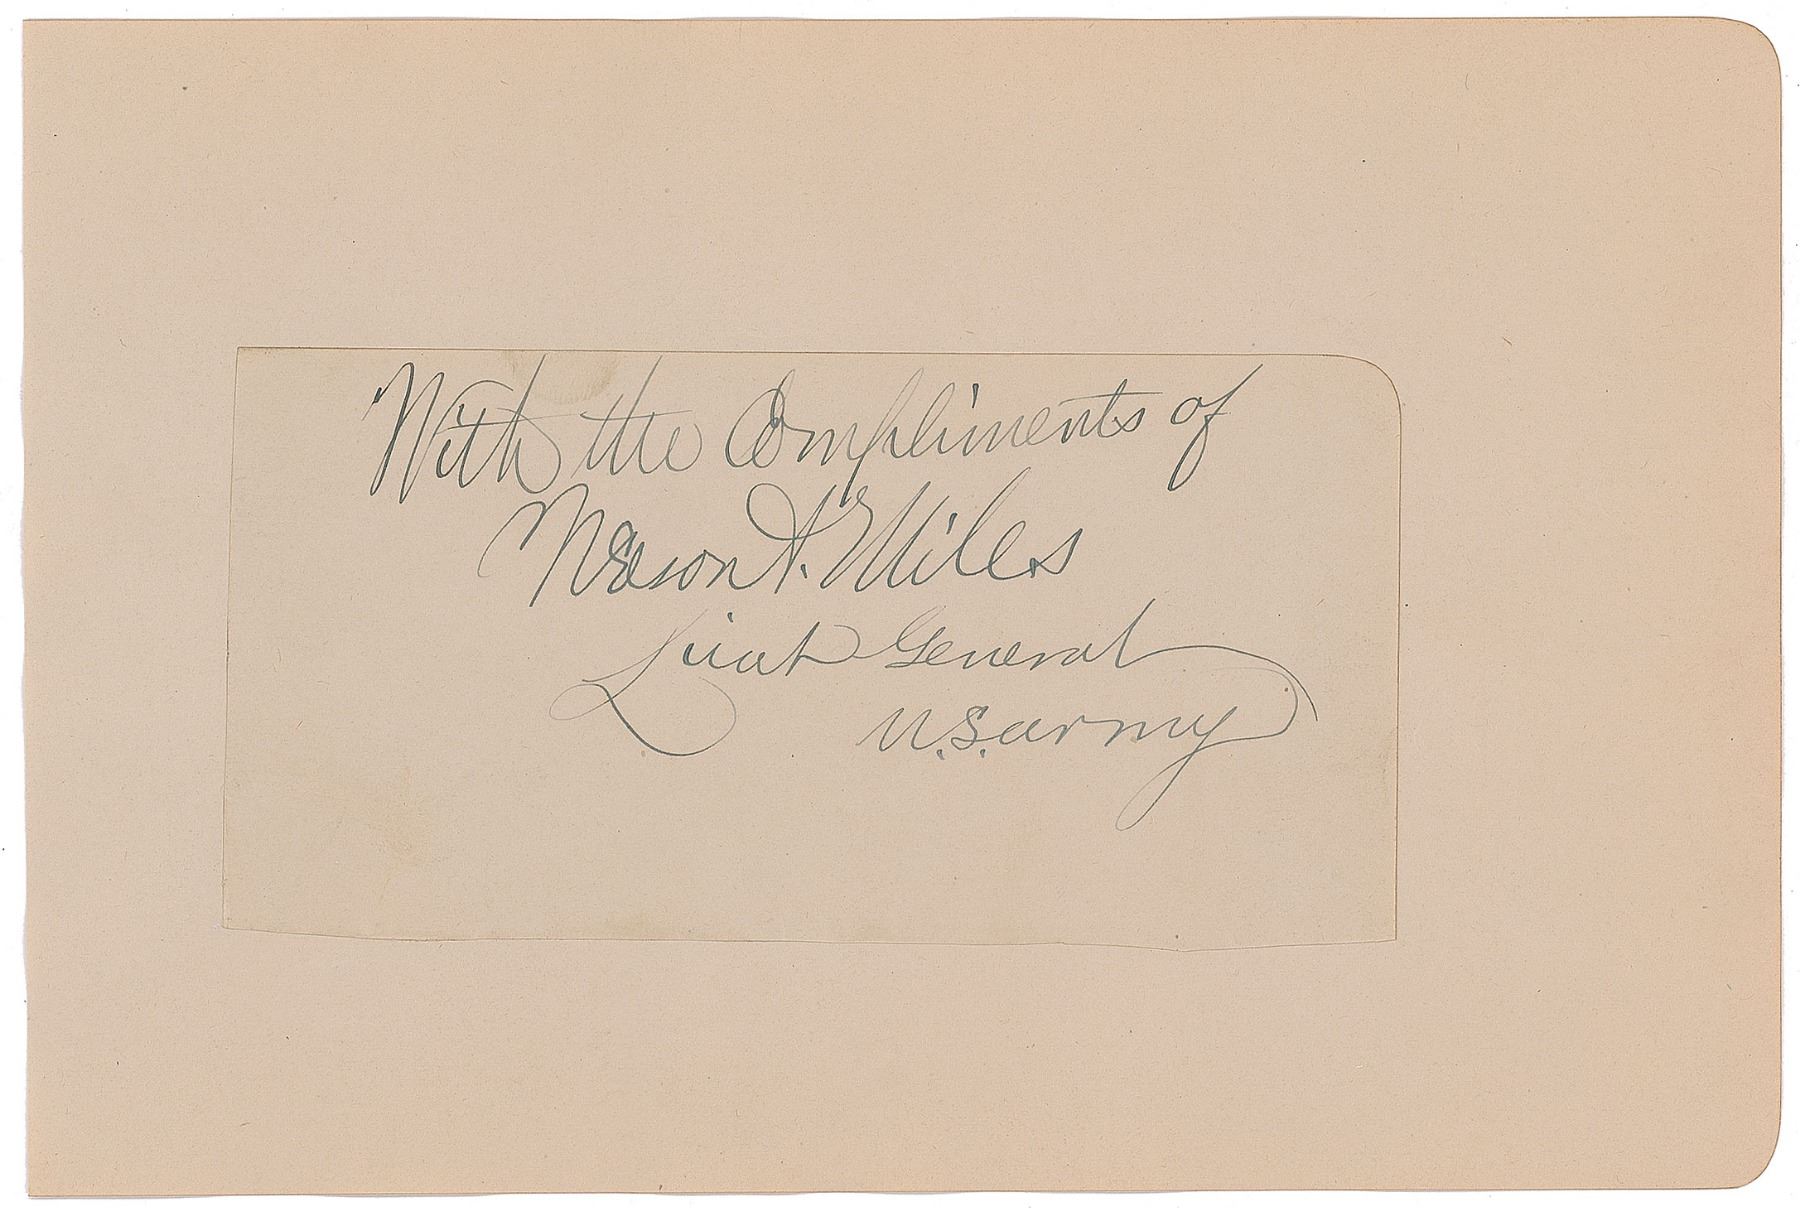 With the Compliments of
Nelson A. Miles
Lieut General
U.S. army